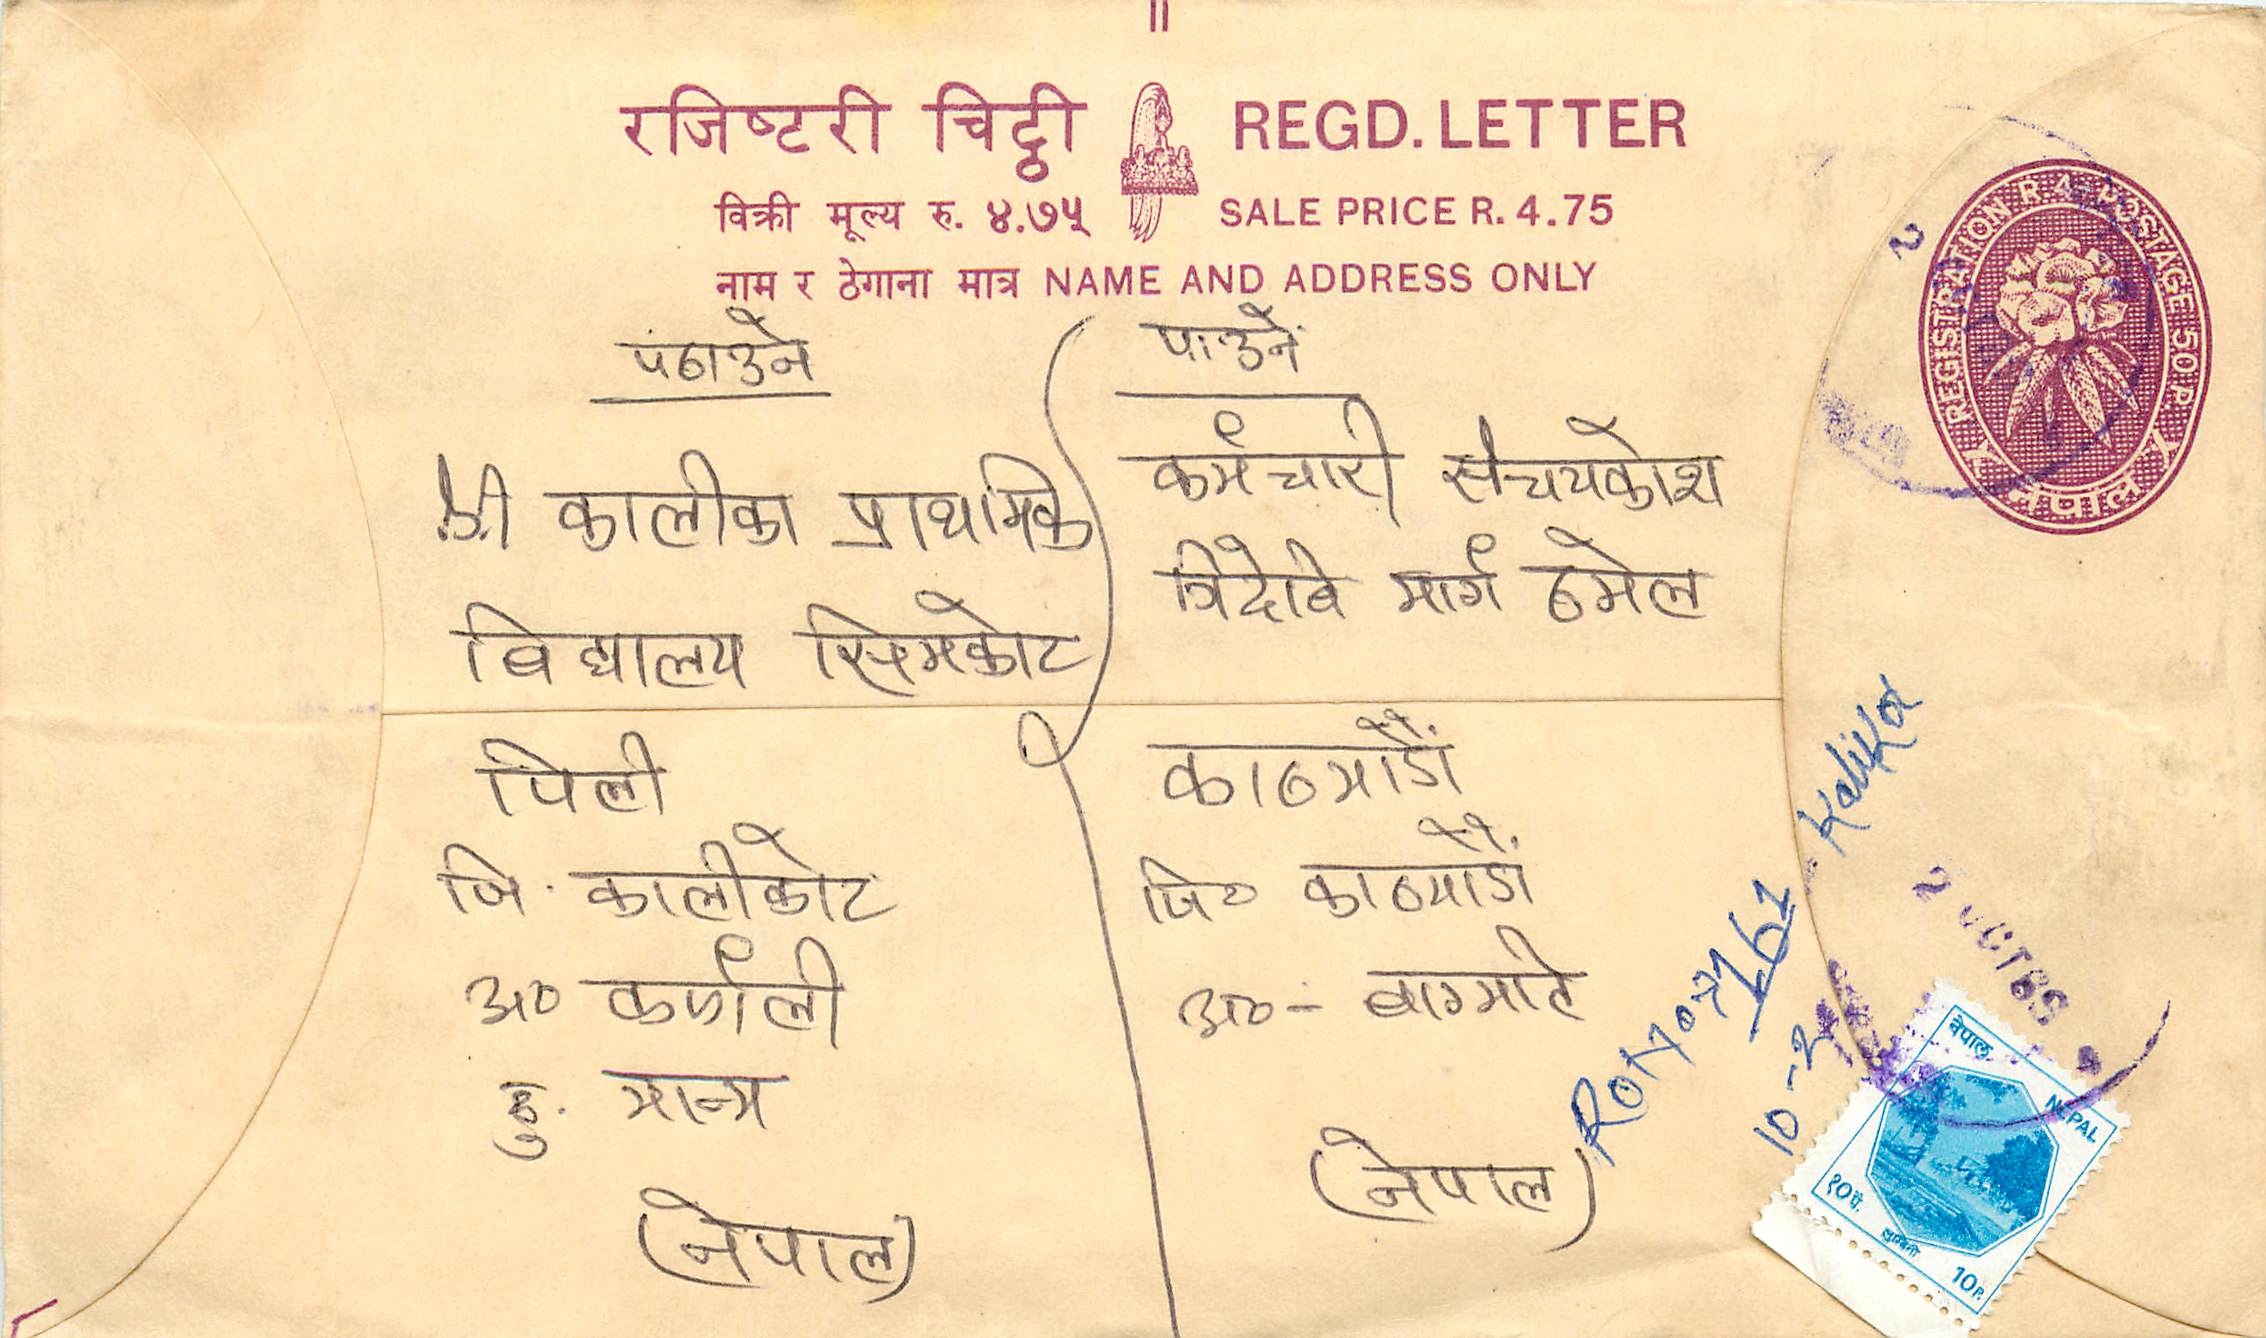 रजिष्टरी चिठ्ठी REGD. LETTER
विक्री मूल्य रु. ४.७५ SALE PRICE R. 4.75
नाम र ठेगाना मात्र NAME AND ADDRESS ONLY
REGISTRATION R. 4. POSTAGE 50 P.
नेपाल
पठाउने
श्री कालीका प्राथमिक
बिद्यालय सिमकोट
पिली
जि. कालीकोट
अ० कर्णाली
हु. मान्म
(नेपाल)
पाउने
कर्मचारी संचयकोश
त्रिदेबि मार्ग ठमेल
काठमाडौं
जि० काठमाडौं
अ०- बागमति
(नेपाल)
Kalikot
761
10-2
2 OCT 89
नेपाल
NEPAL
१० पै.
लुम्बिनी
10 P.